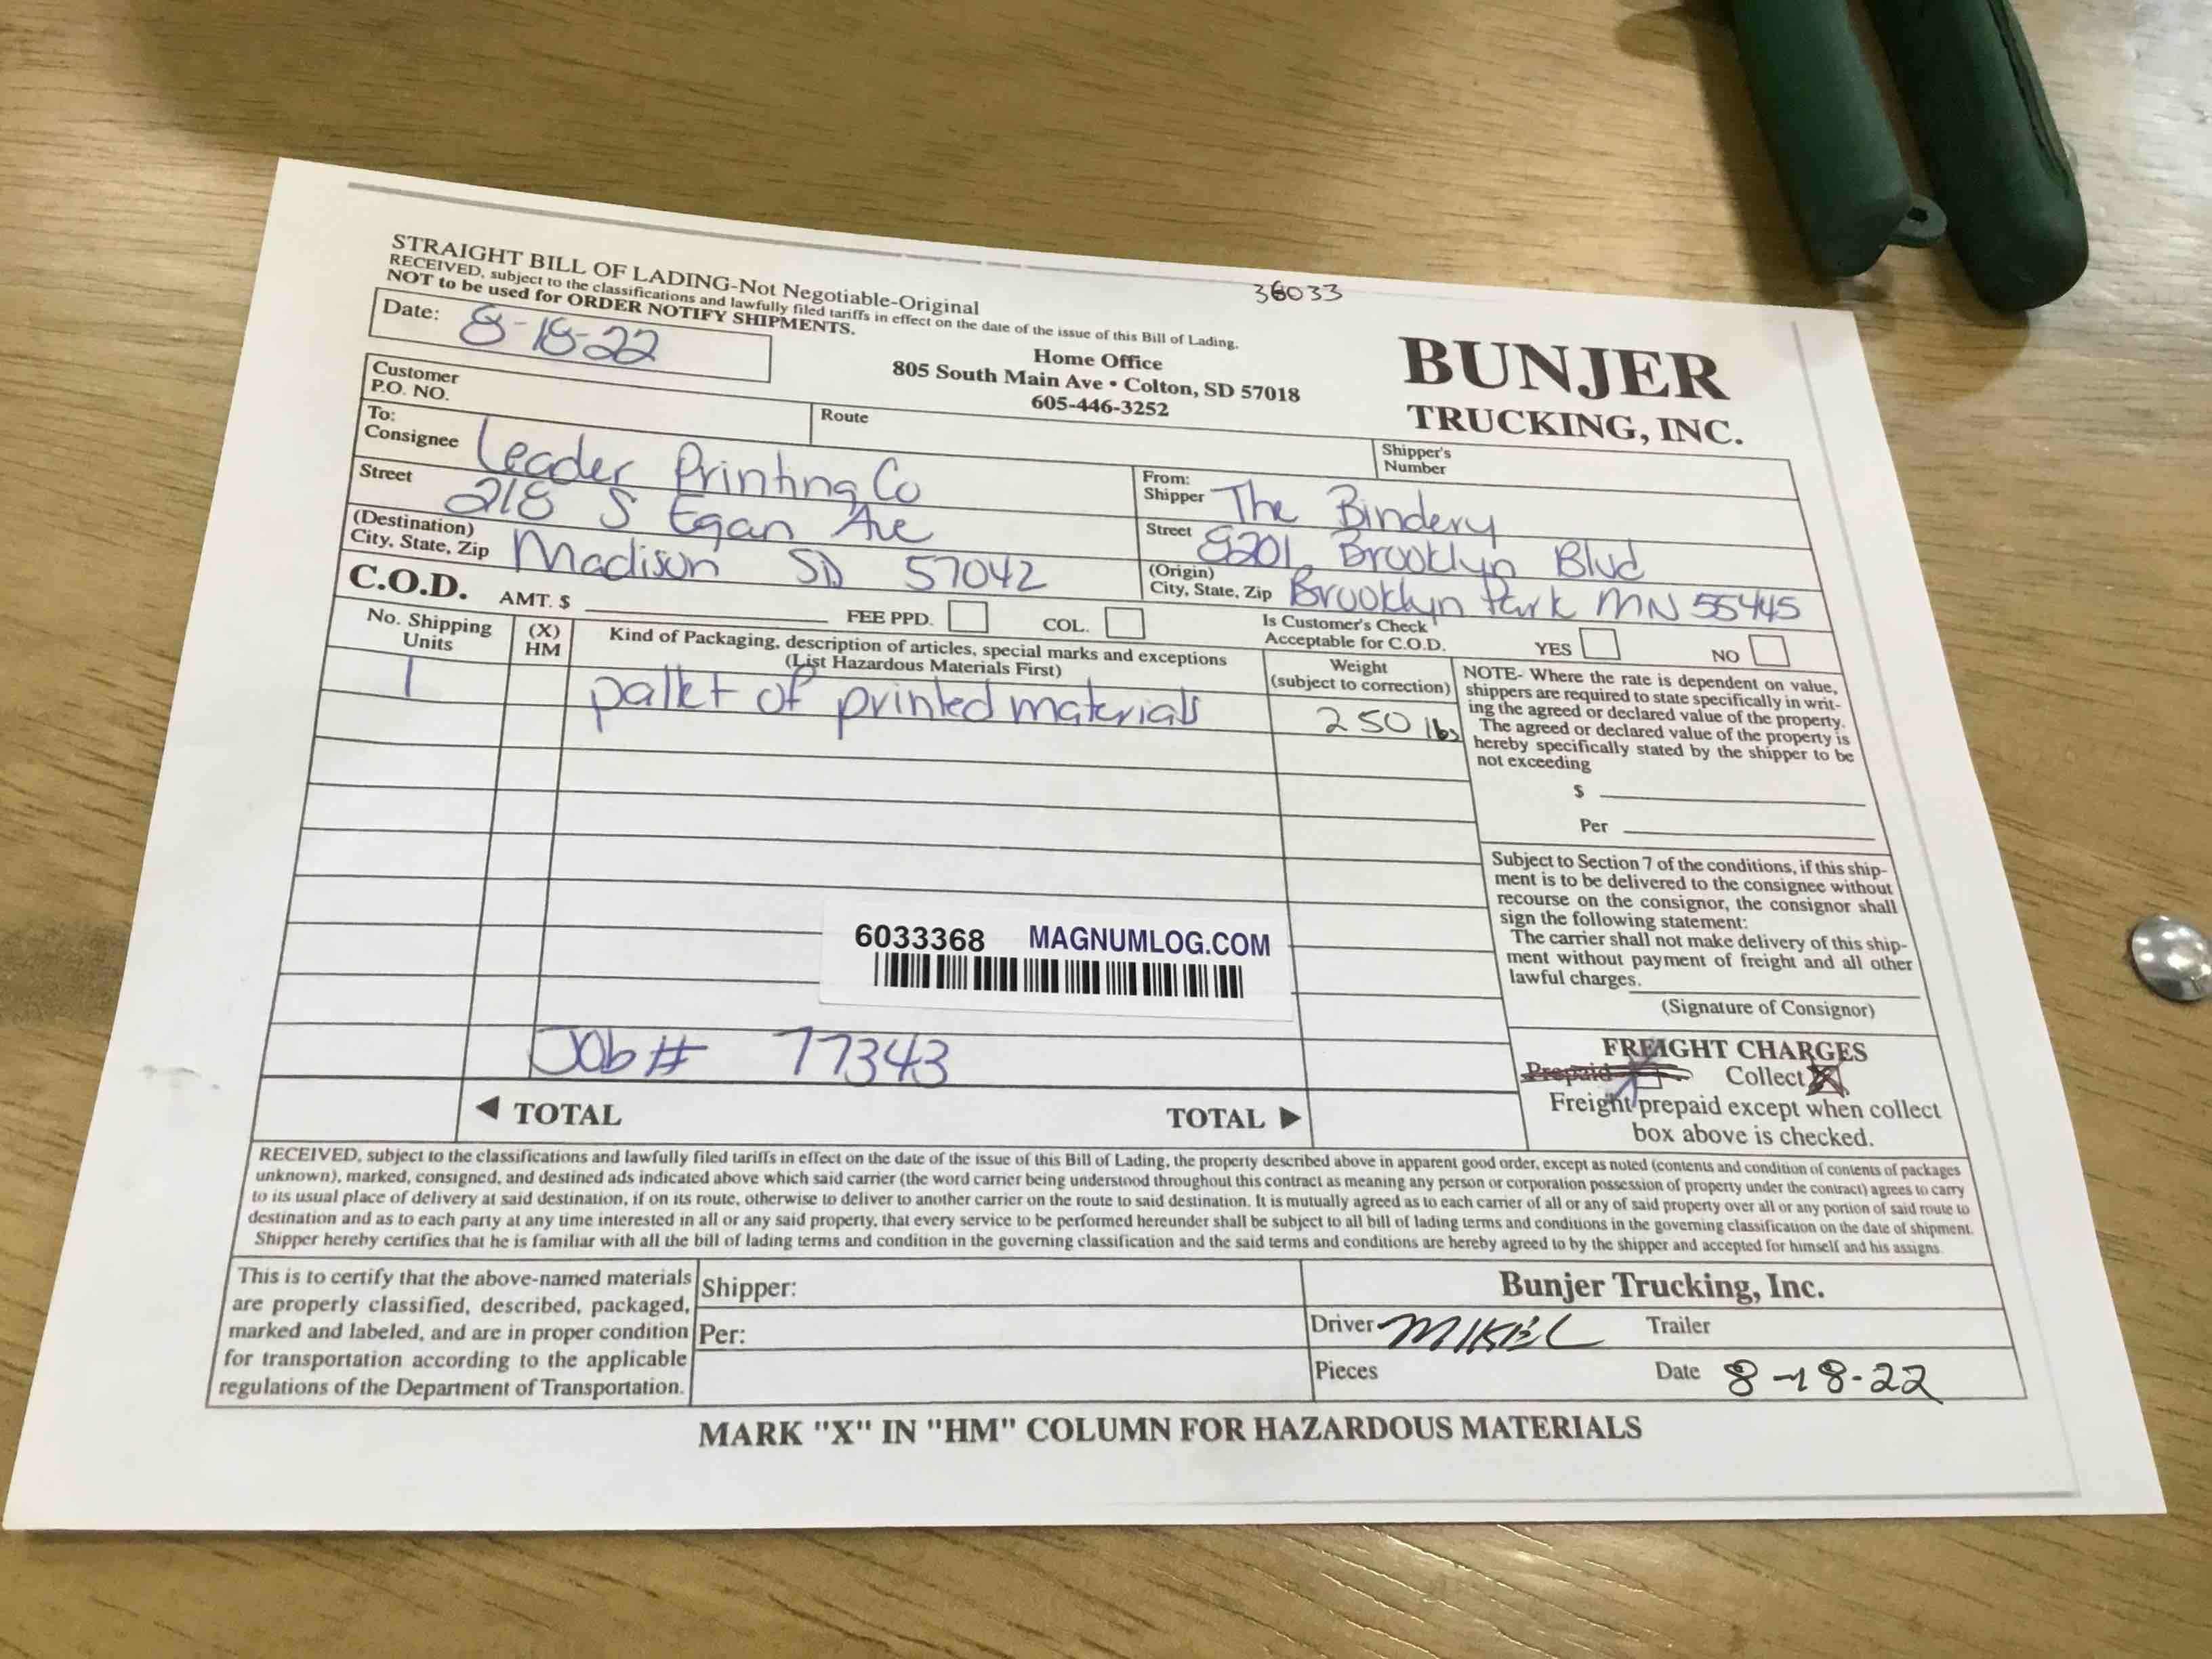 STRAIGHT BILL OF LADING-Not Negotiable-Original
RECEIVED, subject to the classifications and lawfully filed tariffs in effect on the date of the issue of this Bill of Lading.
NOT to be used for ORDER NOTIFY SHIPMENTS.
36033
Date: 8-18-22
Home Office
805 South Main Ave • Colton, SD 57018
605-446-3252
BUNJER
TRUCKING, INC.
Customer
P.O. NO.
Route
Shipper's
Number
To:
Consignee Leader Printing Co
Street 218 S Egan Ave
(Destination)
City, State, Zip Madison SD 57042
From:
Shipper The Bindery
Street 8201 Brooklyn Blvd
(Origin)
City, State, Zip Brooklyn Park MN 55445
C.O.D. AMT. $ FEE PPD. COL.
Is Customer's Check
Acceptable for C.O.D. YES NO
No. Shipping
Units
(X)
HM
Kind of Packaging, description of articles, special marks and exceptions
(List Hazardous Materials First)
Weight
(subject to correction)
1 pallet of printed materials 250 lbs
NOTE- Where the rate is dependent on value,
shippers are required to state specifically in writ-
ing the agreed or declared value of the property.
The agreed or declared value of the property is
hereby specifically stated by the shipper to be
not exceeding
$
Per
Subject to Section 7 of the conditions, if this ship-
ment is to be delivered to the consignee without
recourse on the consignor, the consignor shall
sign the following statement:
The carrier shall not make delivery of this ship-
ment without payment of freight and all other
lawful charges.
(Signature of Consignor)
6033368 MAGNUMLOG.COM
Job # 77343
FREIGHT CHARGES
Prepaid Collect X
Freight prepaid except when collect
box above is checked.
◄ TOTAL TOTAL ►
RECEIVED, subject to the classifications and lawfully filed tariffs in effect on the date of the issue of this Bill of Lading, the property described above in apparent good order, except as noted (contents and condition of contents of packages
unknown), marked, consigned, and destined ads indicated above which said carrier (the word carrier being understood throughout this contract as meaning any person or corporation possession of property under the contract) agrees to carry
to its usual place of delivery at said destination, if on its route, otherwise to deliver to another carrier on the route to said destination. It is mutually agreed as to each carrier of all or any of said property over all or any portion of said route to
destination and as to each party at any time interested in all or any said property, that every service to be performed hereunder shall be subject to all bill of lading terms and conditions in the governing classification on the date of shipment.
Shipper hereby certifies that he is familiar with all the bill of lading terms and condition in the governing classification and the said terms and conditions are hereby agreed to by the shipper and accepted for himself and his assigns.
This is to certify that the above-named materials
are properly classified, described, packaged,
marked and labeled, and are in proper condition
for transportation according to the applicable
regulations of the Department of Transportation.
Shipper:
Per:
Bunjer Trucking, Inc.
Driver MIKEL Trailer
Pieces Date 8-18-22
MARK "X" IN "HM" COLUMN FOR HAZARDOUS MATERIALS